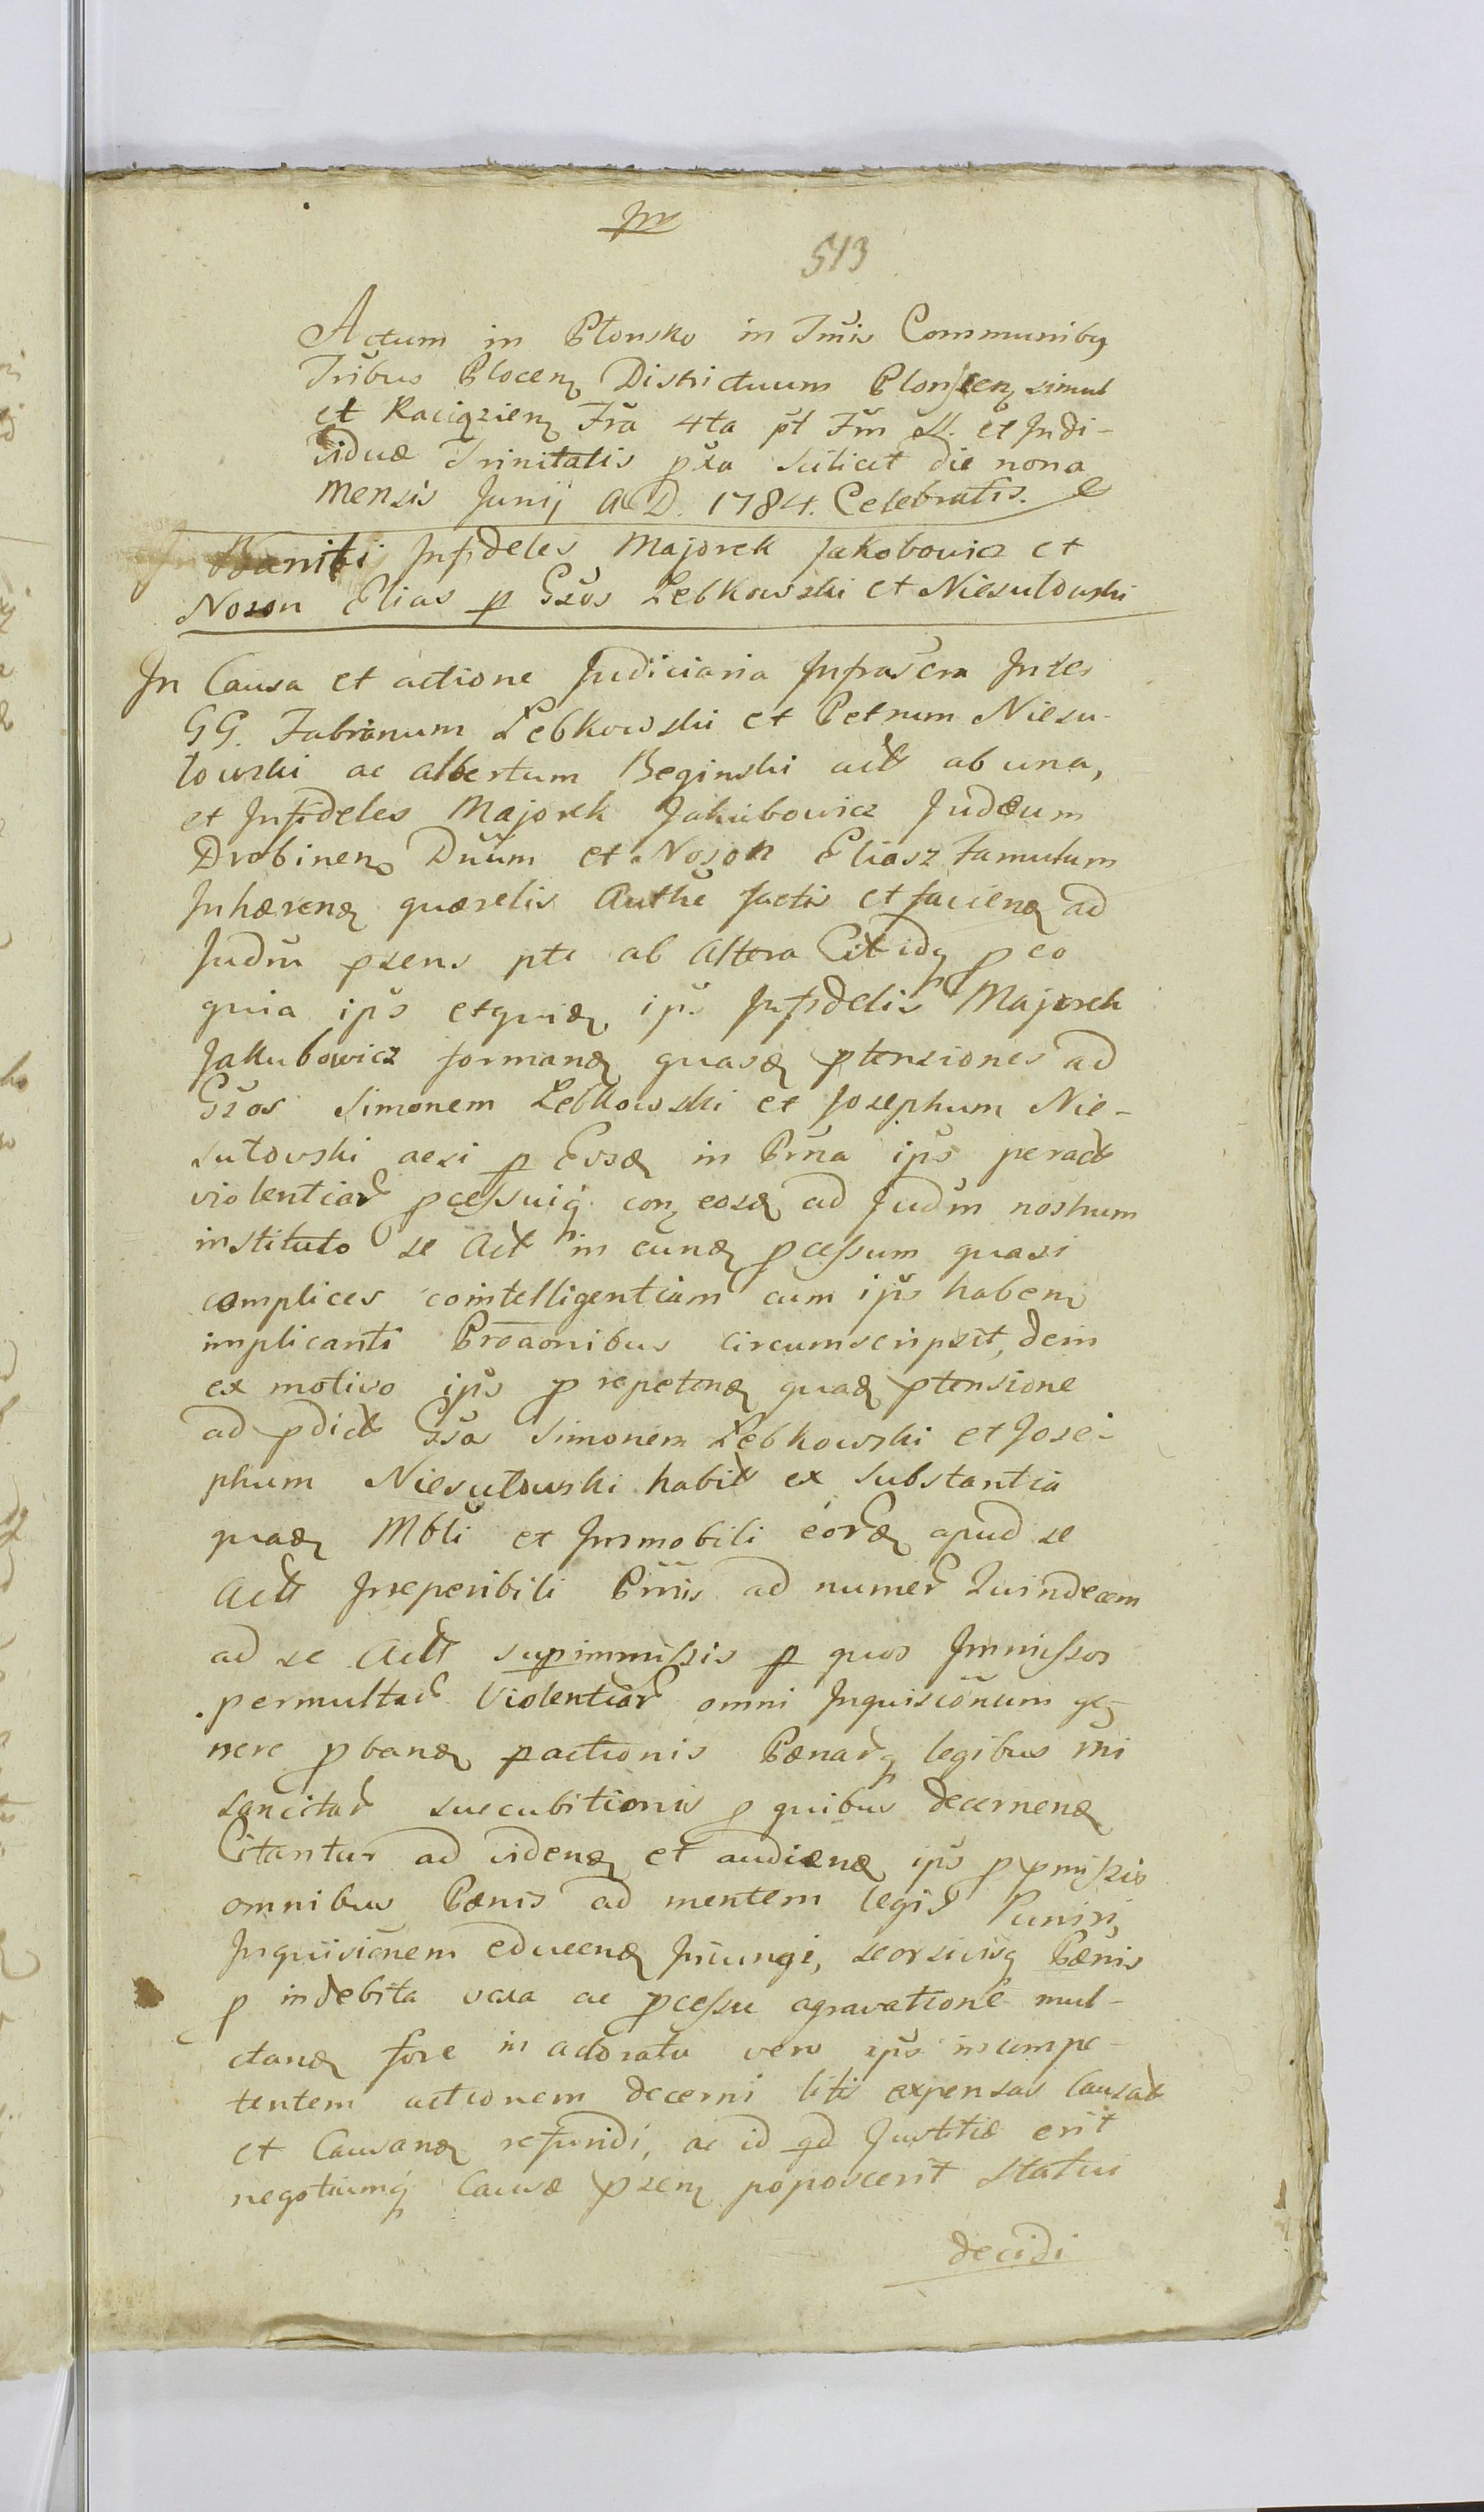 513
Actum in Płonsko in Tmis Communibq
Tribus Plocen Districtuum Plonscen simul
et Raciązien Fra 4ta pt Fm SS. et Indi-
viduæ Trinitatis pxa scilicet die nona
Mensis Junij A D. 1784. Celebratis.
Baniti Infideles Majorek Jakobowicz et
Noson Elias p Gsos Lebkowski et Niesułowski
In Causa et actione Judiciaria Infrascra Inter
GG. Fabianum Lebkowski et Petrum Niesu-
łowski ac Albertum Beginski act ab una,
et Infideles Majorek Jakubowicz Judæum
Drobinen Dnum et Noson Eliasz Famulum
Inhæren quærelis Authe factis et facien ad
Judm psens pte ab Altera Cit idq p eo
quia ips etquid ips Infidelis Majorek
Jakubowicz forman quasd ptensiones ad
Gsos Simonem Lebkowski et Josephum Nie-
sułowski acsi p Eosd in Pma ips peract
violentiar pcessuiq con eosd ad Judm nostrum
instituto se Act in eund pcessum quasi
complices cointelligentiam cum ips haben
implicanti Proaonibus circumscripsit, dein
ex motivo ips p repetend quad ptensione
ad pdict Gsos Simonem Lebkowski et Jose-
phum Niesułowski habit ex substantia
quad Mbli et Immobili eord apud se
Act Irreperibili Pmis ad numer Quindecem
ad se Act supimmissis p quos Immissos
permultar Violentiar omni Inquisionum ge-
nere pband pactionis Pænarq legibus mi
sancitar succubitionis p quibus decernend
Citantur ad videnđ et audiend ips p pmissis
omnibus Pænis ad mentem legis Puniri,
Inquisionem educend Injungi, seorsivisq Pænis
p indebita vexa ac pcessu agravatione mul-
ctand fore in actoratu vero ips incompe-
tentem actionem decerni litis expensas Causat
et Causand refundi, ac id qd Justitiæ erit
negotiumq Causæ psen poposcerit statui
decidi